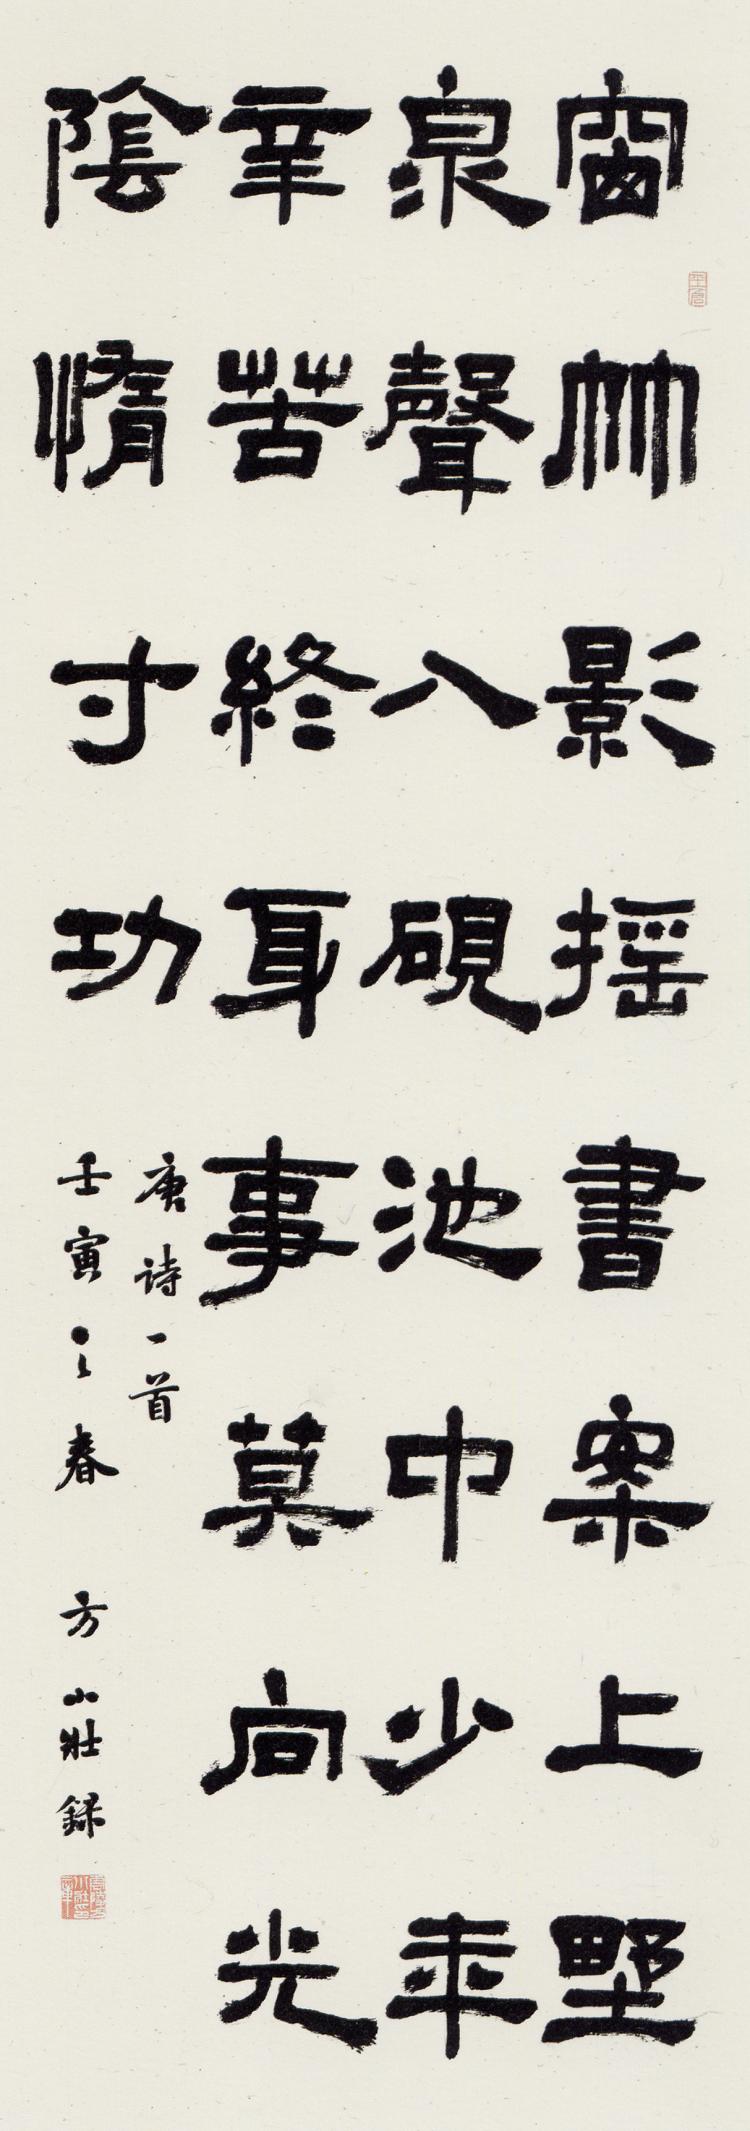 窗竹影摇書案上野
泉聲入硯池中少年
辛苦終身事莫向光
陰惰寸功
唐詩一首
壬寅之春 方小壯録